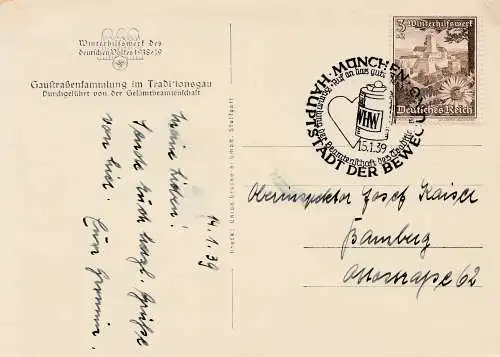 Winterhilfswerk des
deutschen Volkes 1938-39
Gaustraßensammlung im Traditionsgau
Durchgeführt von der Gesamtbeamtenschaft
14.1.39
Meine Lieben!
Sende Euch herzl. Grüße
von hier. Eure
Druck: Union Druckerei GmbH. Stuttgart
3 Winterhilfswerk
Deutsches Reich
MÜNCHEN
HAUPTSTADT DER BEWEGUNG
WHW
15.1.39
Oberinspektor Josef Kaiser
Bamberg
Ottostraße 62